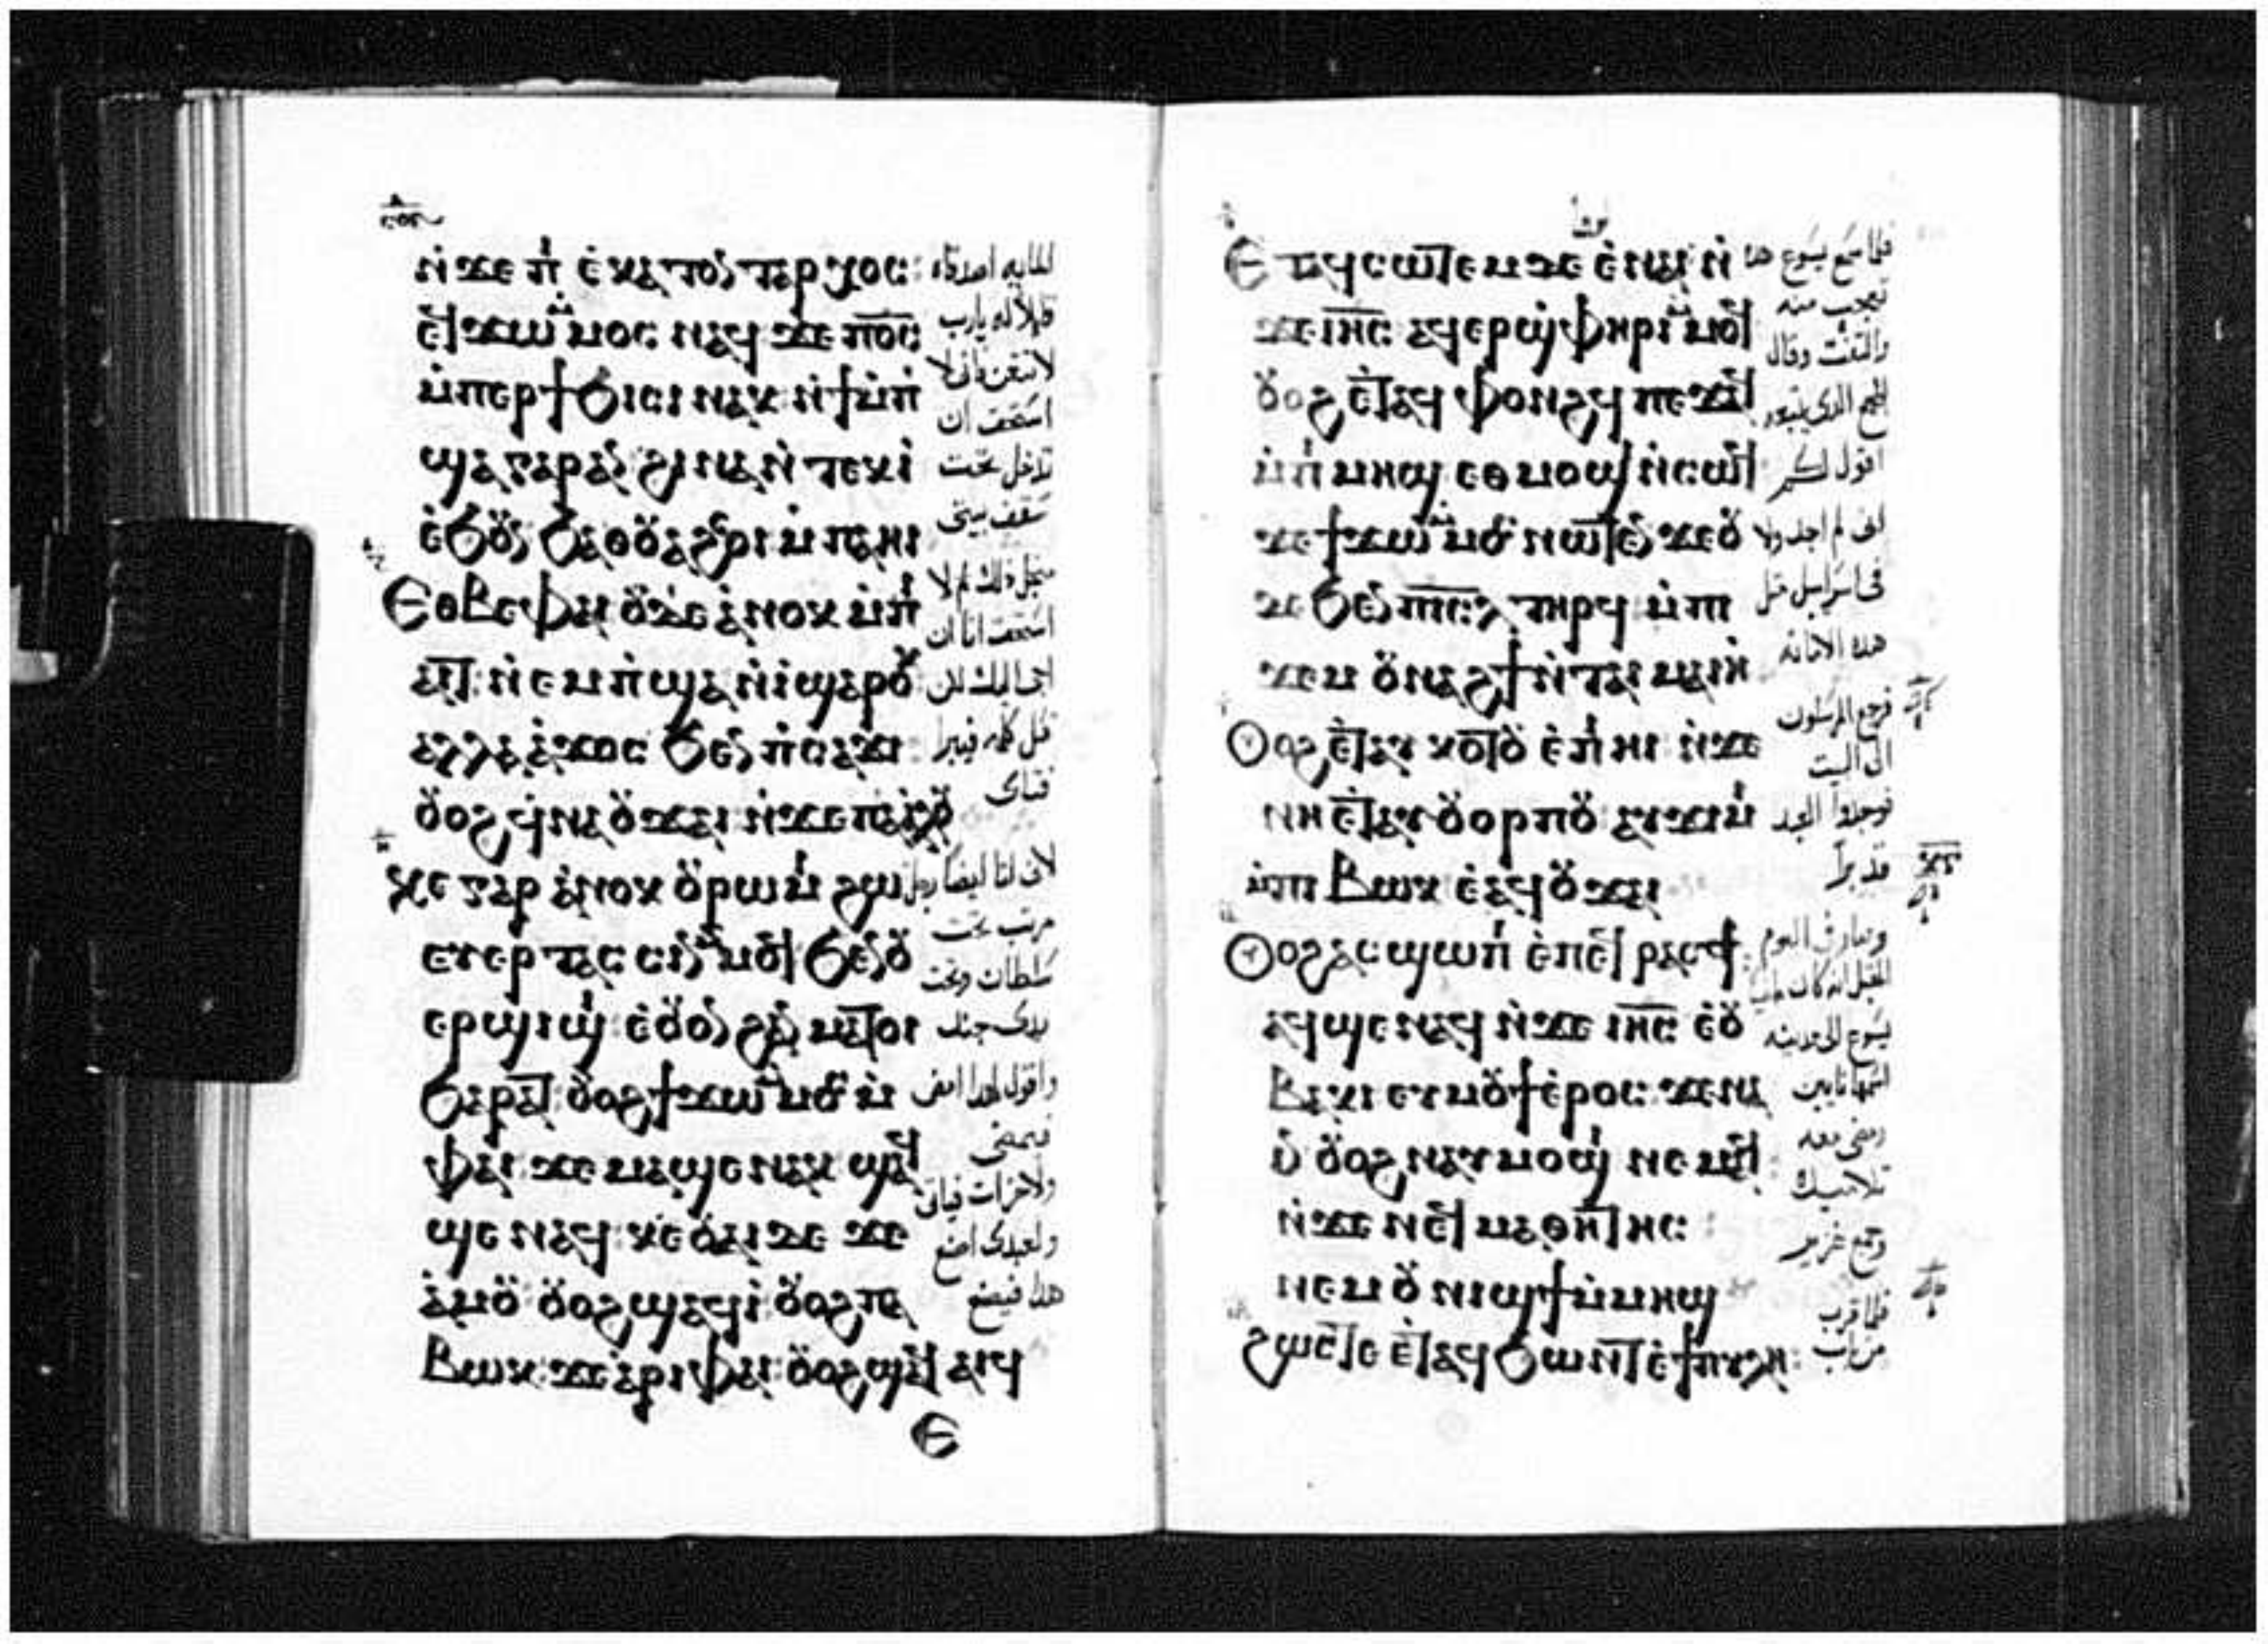 ⲛ̀ϫⲉ ⲡⲓ ⲉ̀ⲕⲁⲧⲟⲛⲧⲁⲣⲭⲟⲥ:
ⲉϥϫⲱ ⲙ̀ⲙⲟⲥ ⲛⲁϥ ϫⲉ ⲡⲟ̅ⲥ̅
ⲙ̀ⲡⲉⲣϯϧⲓⲥⲓ ⲛⲁⲕ ⲛ̀ϯⲙ̀ⲡ̀
ϣⲁ ⲅⲁⲣ ⲁⲛ ϩⲓⲛⲁ ⲛ̀ⲧⲉⲕⲓ̀
ⲉ̀ϧⲟⲩⲛ ϧⲁ ⲙ̀ⲡⲁⲏⲓ
Ⲉⲑⲃⲉⲫⲁⲓ ⲟⲩⲇⲉ ⲁ̀ⲛⲟⲕ ⲙ̀ⲡⲓ
ⲁⲓⲧ ⲛ̀ⲉⲙⲡ̀ϣⲁ ⲛ̀ⲓ̀ ϣⲁⲣⲟⲕ
ⲁⲗⲗⲁ ⲁ̀ϫⲟⲥ ϧⲉⲛ ⲡ̀ⲥⲁϫⲓ:
ⲟⲩⲟϩ ϥ̀ⲛⲁⲟⲩϫⲁⲓ ⲛ̀ϫⲉ ⲡⲁⲁ̀ⲗⲟⲩ
Ⲕⲉ ⲅⲁⲣ ⲁ̀ⲛⲟⲕ ⲟⲩⲣⲱⲙⲓ ϩⲱ
ⲉⲩⲉⲣⲧⲁⲥⲥⲓⲛ ⲙ̀ⲙⲟϥ ϧⲉⲛ ⲟⲩ
ⲉⲣϣⲓϣⲓ ⲉ̀ⲟⲩⲟⲛ ϩⲁⲛ ⲙⲁⲧⲟⲓ
ϧⲁⲣⲁⲧ ⲟⲩⲟϩ ϯϫⲱ ⲙ̀ⲙⲟⲥ ⲙ̀
ⲫⲁⲓ ϫⲉ ⲙⲁϣⲉ ⲛⲁⲕ ϣⲁϥ
ϣⲉ ⲛⲁϥ ⲕⲉ ⲟⲩⲁⲓ ⲇⲉ ϫⲉ
ⲁ̀ⲙⲟⲩ ⲟⲩⲟϩ ϣⲁϥⲓ̀ ⲟⲩⲟϩ ⲡⲁ
ⲃⲱⲕ ϫⲉ ⲁ̀ⲣⲓ ⲫⲁⲓ ⲟⲩⲟϩ ϣⲁϥⲁⲓϥ
Ⲉ
المايه اصدقاه
قايلا له يارب
لا تتعن فاني لا
استحق ان
تدخل تحت
سقف بيتي
من اجل ذلك لم
استحق انا ان
اجي اليك لكن
قل كلمه فيبرا
فتاي
لان انا ايضا رجل
مرتب تحت
سلطان وتحت
يدي جند
واقول لهذا امض
فيمضي
ولاخر ات فياتي
ولعبدي اصنع
هذا فيصنع
Ⲉⲧⲁϥⲥⲱⲧⲉⲙ ⲇⲉ ⲉ̀ⲛⲁⲓ ⲛ̀
ϫⲉ ⲓⲏ̅ⲥ̅ ⲁϥⲉⲣϣ̀ⲫⲏⲣⲓ ⲙ̀ⲙⲟϥ
ⲟⲩⲟϩ ⲉ̀ⲧⲁϥⲫⲟⲛϩϥ ⲡⲉϫⲁϥ
ⲙ̀ⲡⲓ ⲙⲏϣ ⲉⲑⲙⲟϣⲓ ⲛ̀ⲥⲱϥ
ϫⲉ ϯϫⲱ ⲙ̀ⲙⲟⲥ ⲛⲱⲧⲉⲛ ϫⲉ ⲟⲩ
ⲇⲉ ϧⲉⲛ ⲡⲓⲥ̅ⲗ̅ ⲧⲏⲣϥ ⲙ̀ⲡⲓ
ϫⲉⲙ ⲟⲩⲛⲁϩϯ ⲛ̀ⲧⲁⲓ ⲙⲁⲓⲏ
Ⲟⲩⲟϩ ⲉ̀ⲧⲁⲩ ⲕⲟⲧⲟⲩ ⲉ̀ⲡⲓ ⲏⲓ ⲛ̀ϫⲉ
ⲛⲏ ⲉ̀ⲧⲁⲩⲟⲩⲟⲣⲡⲟⲩ ⲁⲩϫⲓⲙⲓ
ⲙ̀ⲡⲓ ⲃⲱⲕ ⲉ̀ⲁϥⲟⲩϫⲁⲓ
Ⲟⲩⲟϩ ⲁⲥϣⲱⲡⲓ ⲉ̀ⲡⲉϥ ⲣⲁⲥϯ:
ⲁϥϣⲉ ⲛⲁϥ ⲛ̀ϫⲉ ⲓⲏ̅ⲥ̅ ⲉ̀ⲟⲩ
ⲃⲁⲕⲓ ⲉⲩⲙⲟⲩϯ ⲉ̀ⲣⲟⲥ ϫⲉ ⲛⲁ
ⲓⲛ ⲟⲩⲟϩ ⲛⲁⲩⲙⲟϣⲓ ⲛⲉⲙⲁϥ:
ⲛ̀ϫⲉ ⲛⲉϥ ⲙⲁⲑⲏⲧⲏⲥ:
ⲛⲉⲙ ⲟⲩ ⲛⲓϣϯ ⲙ̀ⲙⲏϣ
ϩⲱⲥⲧⲉ ⲉ̀ⲧⲁϥϧⲱⲛⲧ ⲉ̀ϯⲡⲩⲗⲏ:
فلما سمع يسوع هذا
تعجب منه
والتفت وقال
للجمع الذي يتبعه
اقول لكم
اني لم اجد ولا
في اسراييل مثل
هذه الامانه
فرجع المرسلون
الى البيت
فوجدوا العبد
قد برا
وصار في اليوم
يسوع الى مدينه
اسمها نايين
ومضى معه
تلاميذه
وجمع غزير
فلما قرب
من باب